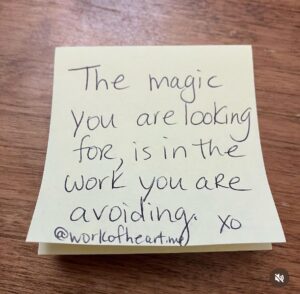 The magic
you are looking
for, is in the
work you are
avoiding. xo
@workofheart.me